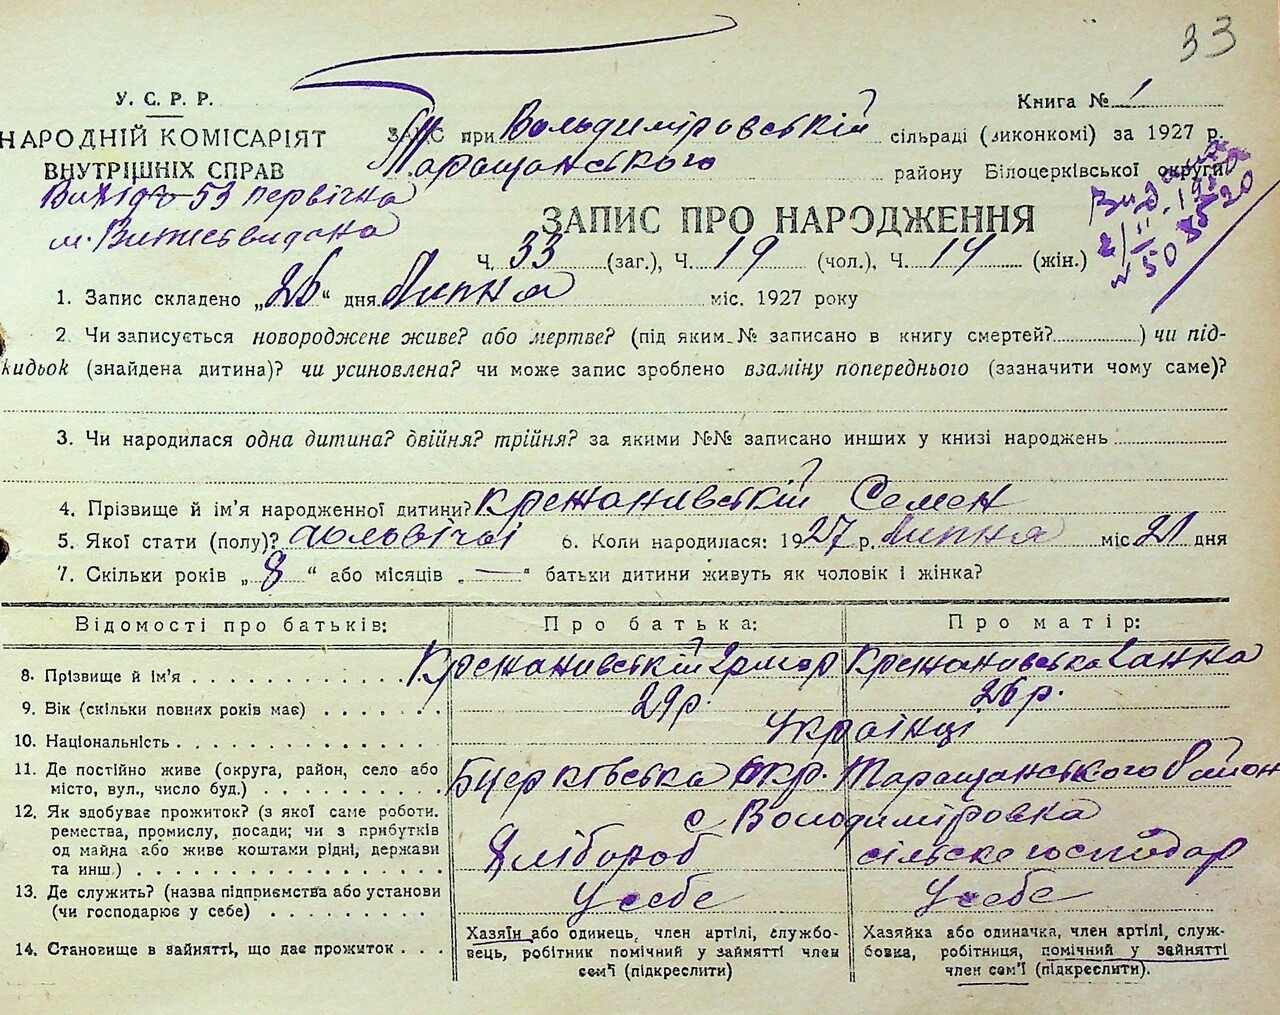 33
У. С. Р. Р.
Книга № 1
НАРОДНІЙ КОМІСАРІЯТ
ВНУТРІШНІХ СПРАВ
ЗАПИС при Вольдиміровській сільраді (виконкомі) за 1927 р.
Таращанського району Білоцерківської округи
53 первічна
ЗАПИС ПРО НАРОДЖЕННЯ
Ч. 33 (заг.), Ч. 19 (чол.), Ч. 14 (жін.)
1. Запис складено „26“ дня Липня міс. 1927 року
2. Чи записується новороджене живе? або мертве? (під яким № записано в книгу смертей?) чи під-
кидьок (знайдена дитина)? чи усиновлена? чи може запис зроблено взаміну попереднього (зазначити чому саме)?
3. Чи народилася одна дитина? двійня? трійня? за якими №№ записано инших у книзі народжень
4. Прізвище й ім'я народженної дитини? Крежанивській Семен
5. Якої стати (полу)? 6. Коли народилася: 1927 р. Липня міс 21 дня
7. Скільки років „8“ або місяців „—“ батьки дитини живуть як чоловік і жінка?
Відомості про батьків: Про батька: Про матір:
8. Прізвище й ім'я Крежановській Крежановська Ганна
9. Вік (скільки повних років має) 29р. 26р.
10. Національність Українці
11. Де постійно живе (округа, район, село або
місто, вул., число буд.) Бцерківська окр. Таращанського Район
с Володиміровка
12. Як здобуває прожиток? (з якої саме роботи.
ремества, промислу, посади; чи з прибутків
од майна або живе коштами рідні, держави
та инш.) Хлібороб сільскегосподар
13. Де служить? (назва підприємства або установи
(чи господарює у себе) У себе У себе
14. Становище в зайнятті, що дає прожиток
Хазяїн або одинець, член артілі, службо-
вець, робітник помічний у зайнятті член
сем'ї (підкреслити)
Хазяйка або одиначка, член артілі, служ-
бовка, робітниця, помічний у зайнятті
член сем'ї (підкреслити).